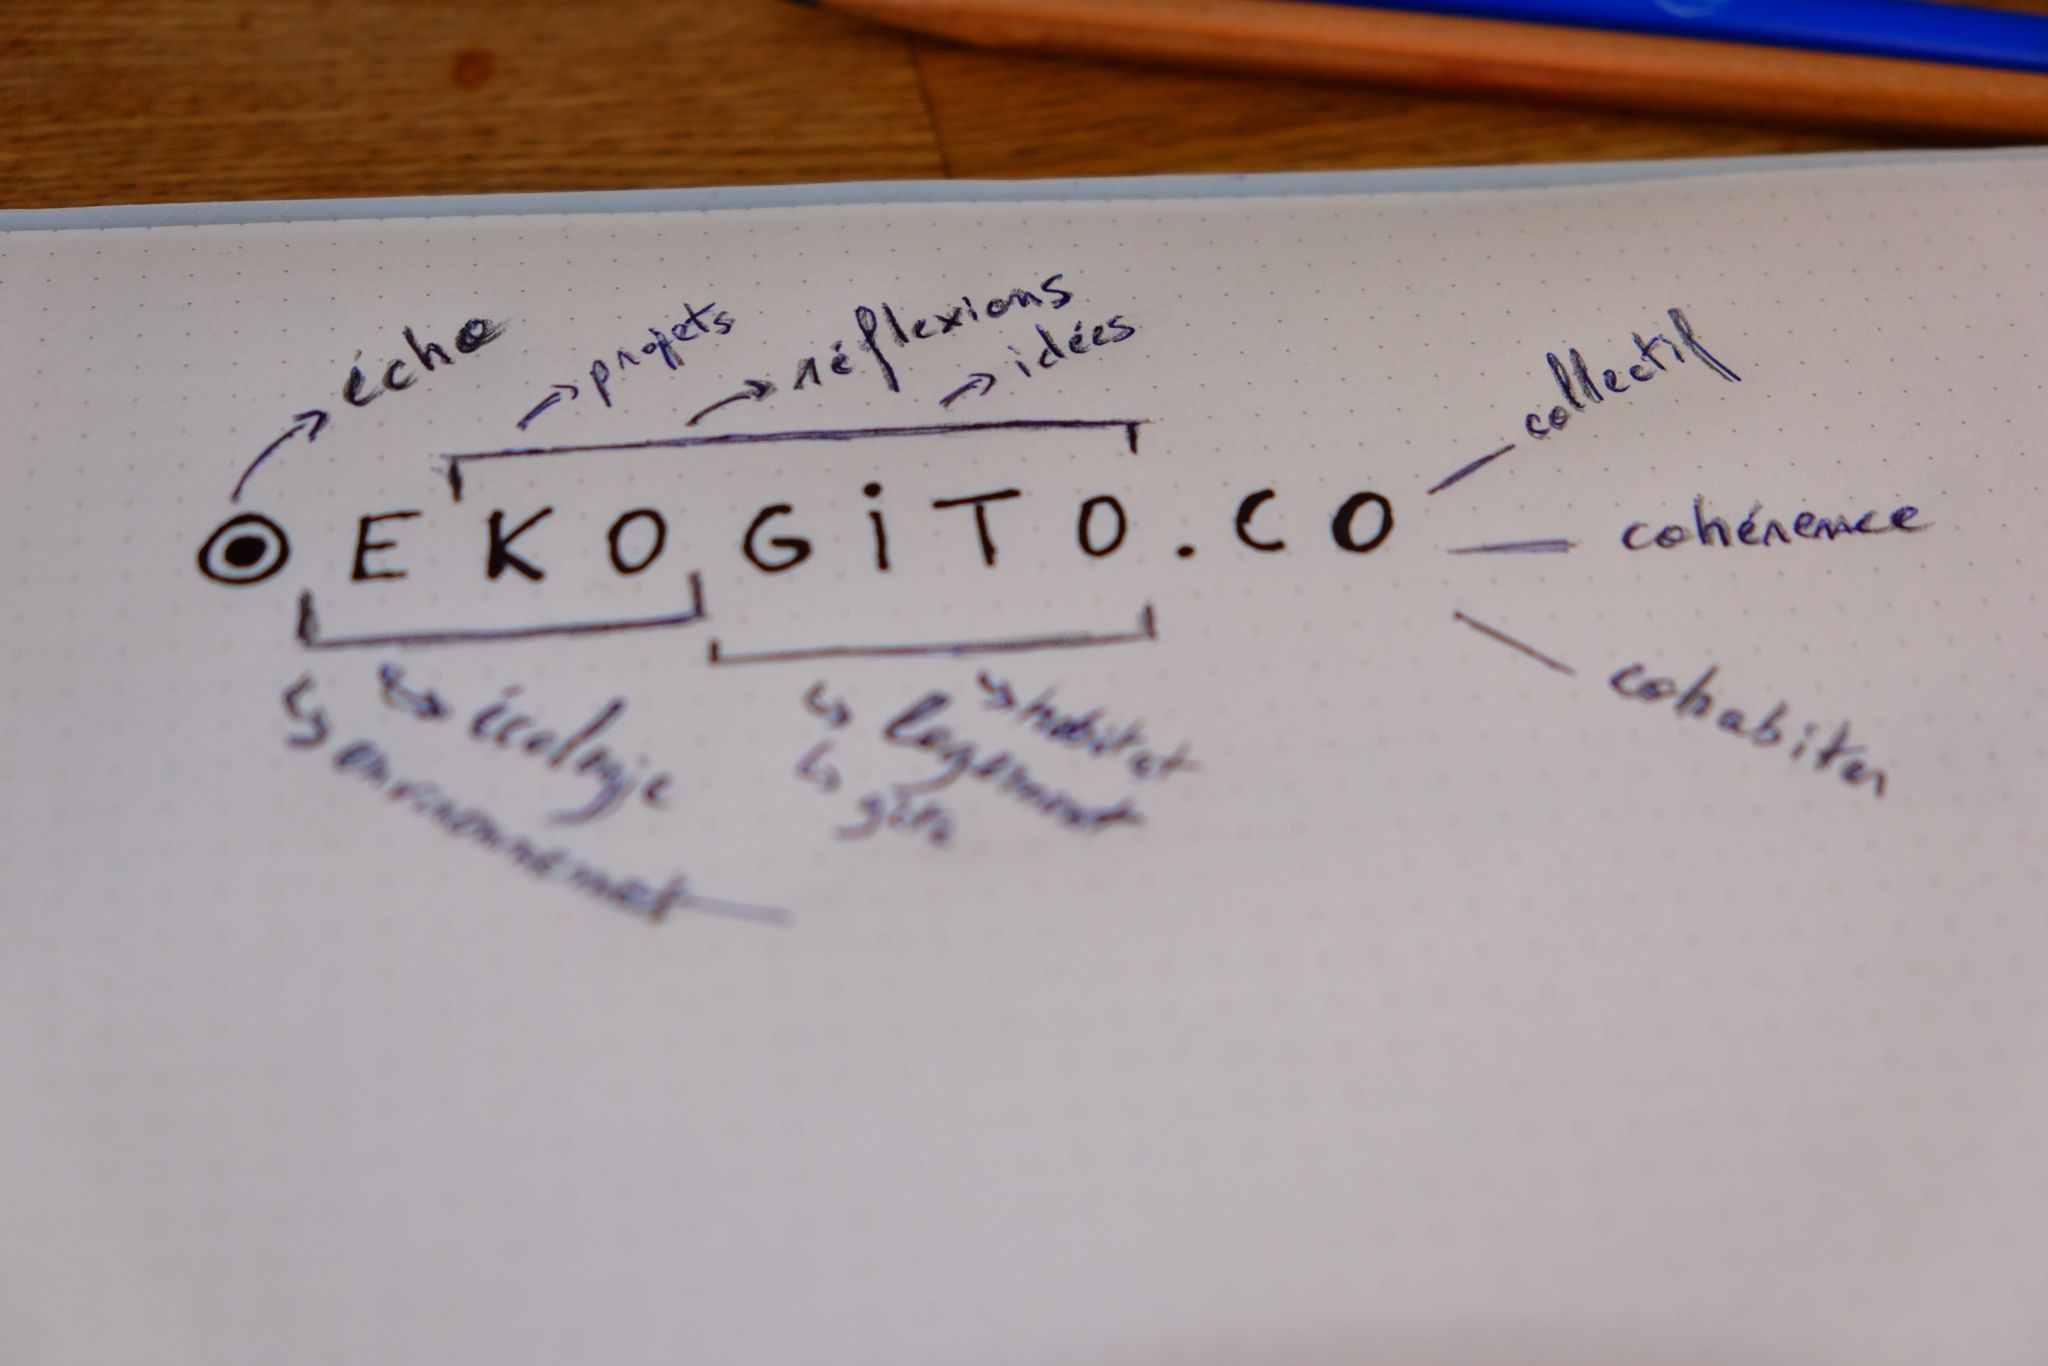 écho
projets
réflexions
idées
EKOGiTO.CO
collectif
cohérence
cohabiter
écologie
environnement
habitat
logement
gîte